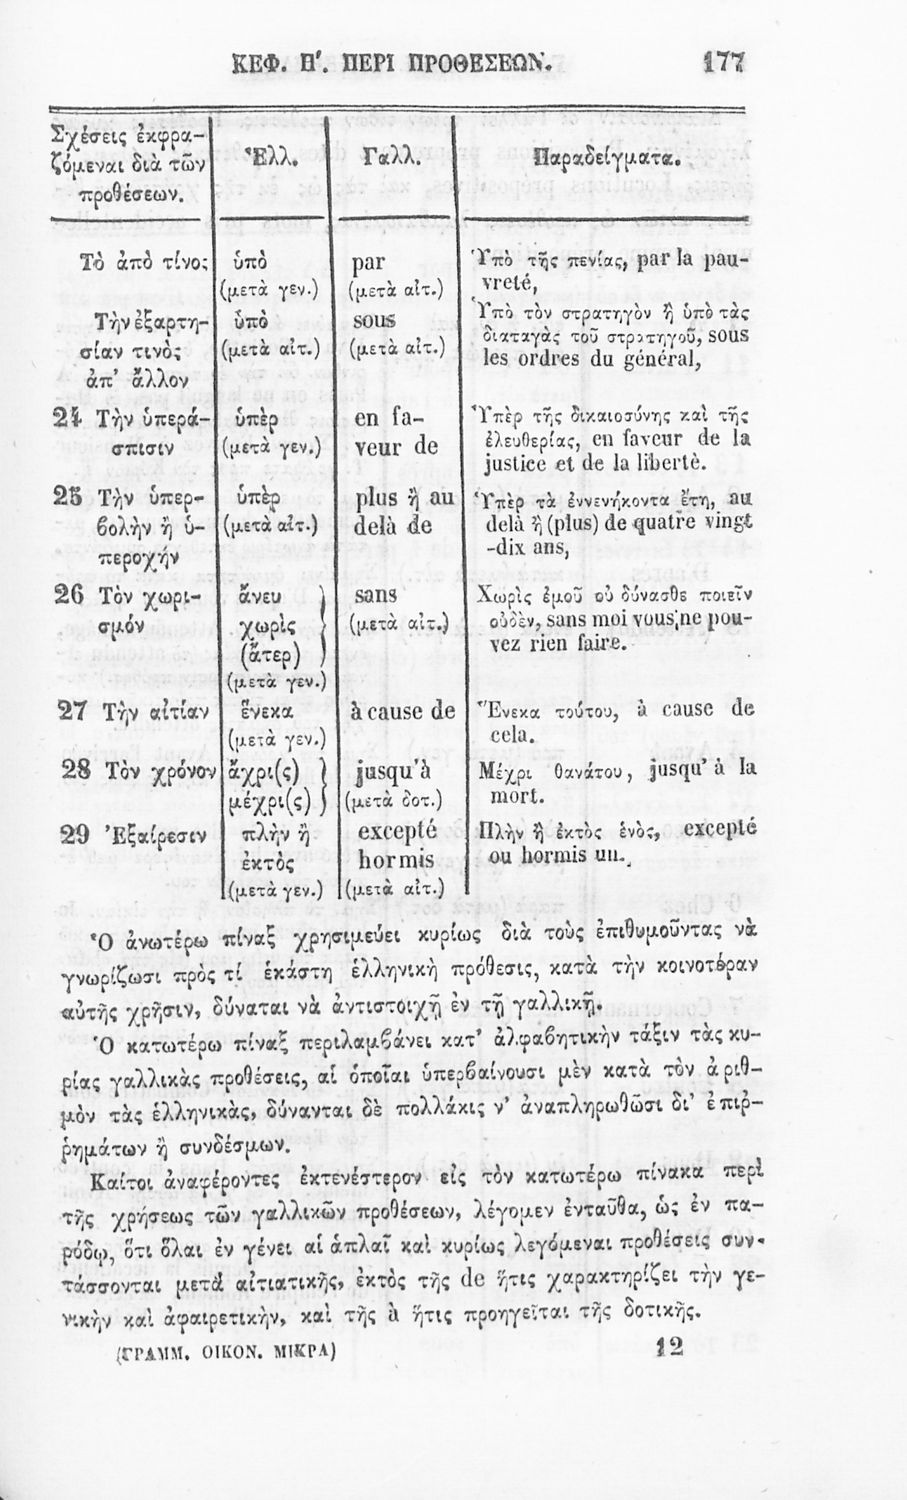 ΚΕΦ. Π′. ΠΕΡΙ ΠΡΟΘΕΣΕΩΝ. 177
Σχέσεις ἐκφρα-
ζόμεναι διὰ τῶν
προθέσεων.
Ἑλλ.
Γαλλ.
Παραδείγματα.
Τὸ ἀπὸ τίνος ὑπὸ par Ὑπὸ τῆς πενίας, par la pau-
(μετὰ γεν.) (μετὰ αἰτ.) vreté,
Τὴν ἐξαρτη- ὑπὸ sous Ὑπὸ τὸν στρατηγὸν ἢ ὑπὸ τὰς
σίαν τινὸς (μετὰ αἰτ.) (μετὰ αἰτ.) διαταγὰς τοῦ στρατηγοῦ, sous
ἀπ’ ἄλλον les ordres du général,
24 Τὴν ὑπερά- ὑπὲρ en fa- Ὑπὲρ τῆς δικαιοσύνης καὶ τῆς
σπισιν (μετὰ γεν.) veur de ἐλευθερίας, en faveur de la
justice et de la libertè.
25 Τὴν ὑπερ- ὑπὲρ plus ἢ au Ὑπὲρ τὰ ἐννενήκοντα ἔτη, au
βολὴν ἢ ὑ- (μετὰ αἰτ.) delà de delà ἢ (plus) de quatre vingt
περοχήν -dix ans,
26 Τὸν χωρι- ἄνευ sans Χωρὶς ἐμοῦ οὐ δύνασθε ποιεῖν
σμόν χωρὶς (μετὰ αἰτ.) οὐδὲν, sans moi vous ne pou-
(ἄτερ) vez rien faire.
(μετὰ γεν.)
27 Τὴν αἰτίαν ἕνεκα à cause de Ἕνεκα τούτου, à cause de
(μετὰ γεν.) cela.
28 Τὸν χρόνον ἄχρι(ς) jusqu’à Μέχρι θανάτου, jusqu’ à la
μέχρι(ς) (μετὰ δοτ.) mort.
29 Ἐξαίρεσιν πλὴν ἢ excepté Πλὴν ἢ ἐκτὸς ἑνὸς, excepté
ἐκτὸς hormis ou hormis un.
(μετὰ γεν.) (μετὰ αἰτ.)
Ὁ ἀνωτέρω πίναξ χρησιμεύει κυρίως διὰ τοὺς ἐπιθυμοῦντας νὰ
γνωρίζωσι πρὸς τί ἑκάστη ἑλληνικὴ πρόθεσις, κατὰ τὴν κοινοτέραν
αὐτῆς χρῆσιν, δύναται νὰ ἀντιστοιχῇ ἐν τῇ γαλλικῇ.
Ὁ κατωτέρω πίναξ περιλαμβάνει κατ’ ἀλφαβητικὴν τάξιν τὰς κυ-
ρίας γαλλικὰς προθέσεις, αἱ ὁποῖαι ὑπερβαίνουσι μὲν κατὰ τὸν ἀριθ-
μὸν τὰς ἑλληνικὰς, δύνανται δὲ πολλάκις ν’ ἀναπληρωθῶσι δι’ ἐπιῤ-
ῥημάτων ἢ συνδέσμων.
Καίτοι ἀναφέροντες ἐκτενέστερον εἰς τὸν κατωτέρω πίνακα περὶ
τῆς χρήσεως τῶν γαλλικῶν προθέσεων, λέγομεν ἐνταῦθα, ὡς ἐν πα-
ρόδῳ, ὅτι ὅλαι ἐν γένει αἱ ἁπλαῖ καὶ κυρίως λεγόμεναι προθέσεις συν-
τάσσονται μετὰ αἰτιατικῆς, ἐκτὸς τῆς de ἥτις χαρακτηρίζει τὴν γε-
νικὴν καὶ ἀφαιρετικὴν, καὶ τῆς à ἥτις προηγεῖται τῆς δοτικῆς.
(ΓΡΑΜΜ. ΟΙΚΟΝ. ΜΙΚΡΑ) 12